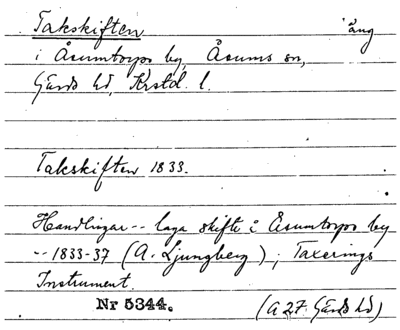 Takskiften äng
i Åsumtorps by, Åsums sn,
Gärds hd, Krstd. l.
Takskiften 1833.
Handlingar -- laga skifte i Åsumtorps by
-- 1833-37 (A. Ljungberg); Taxerings
Instrument.
Nr 5344. (A 27. Gärds hd)